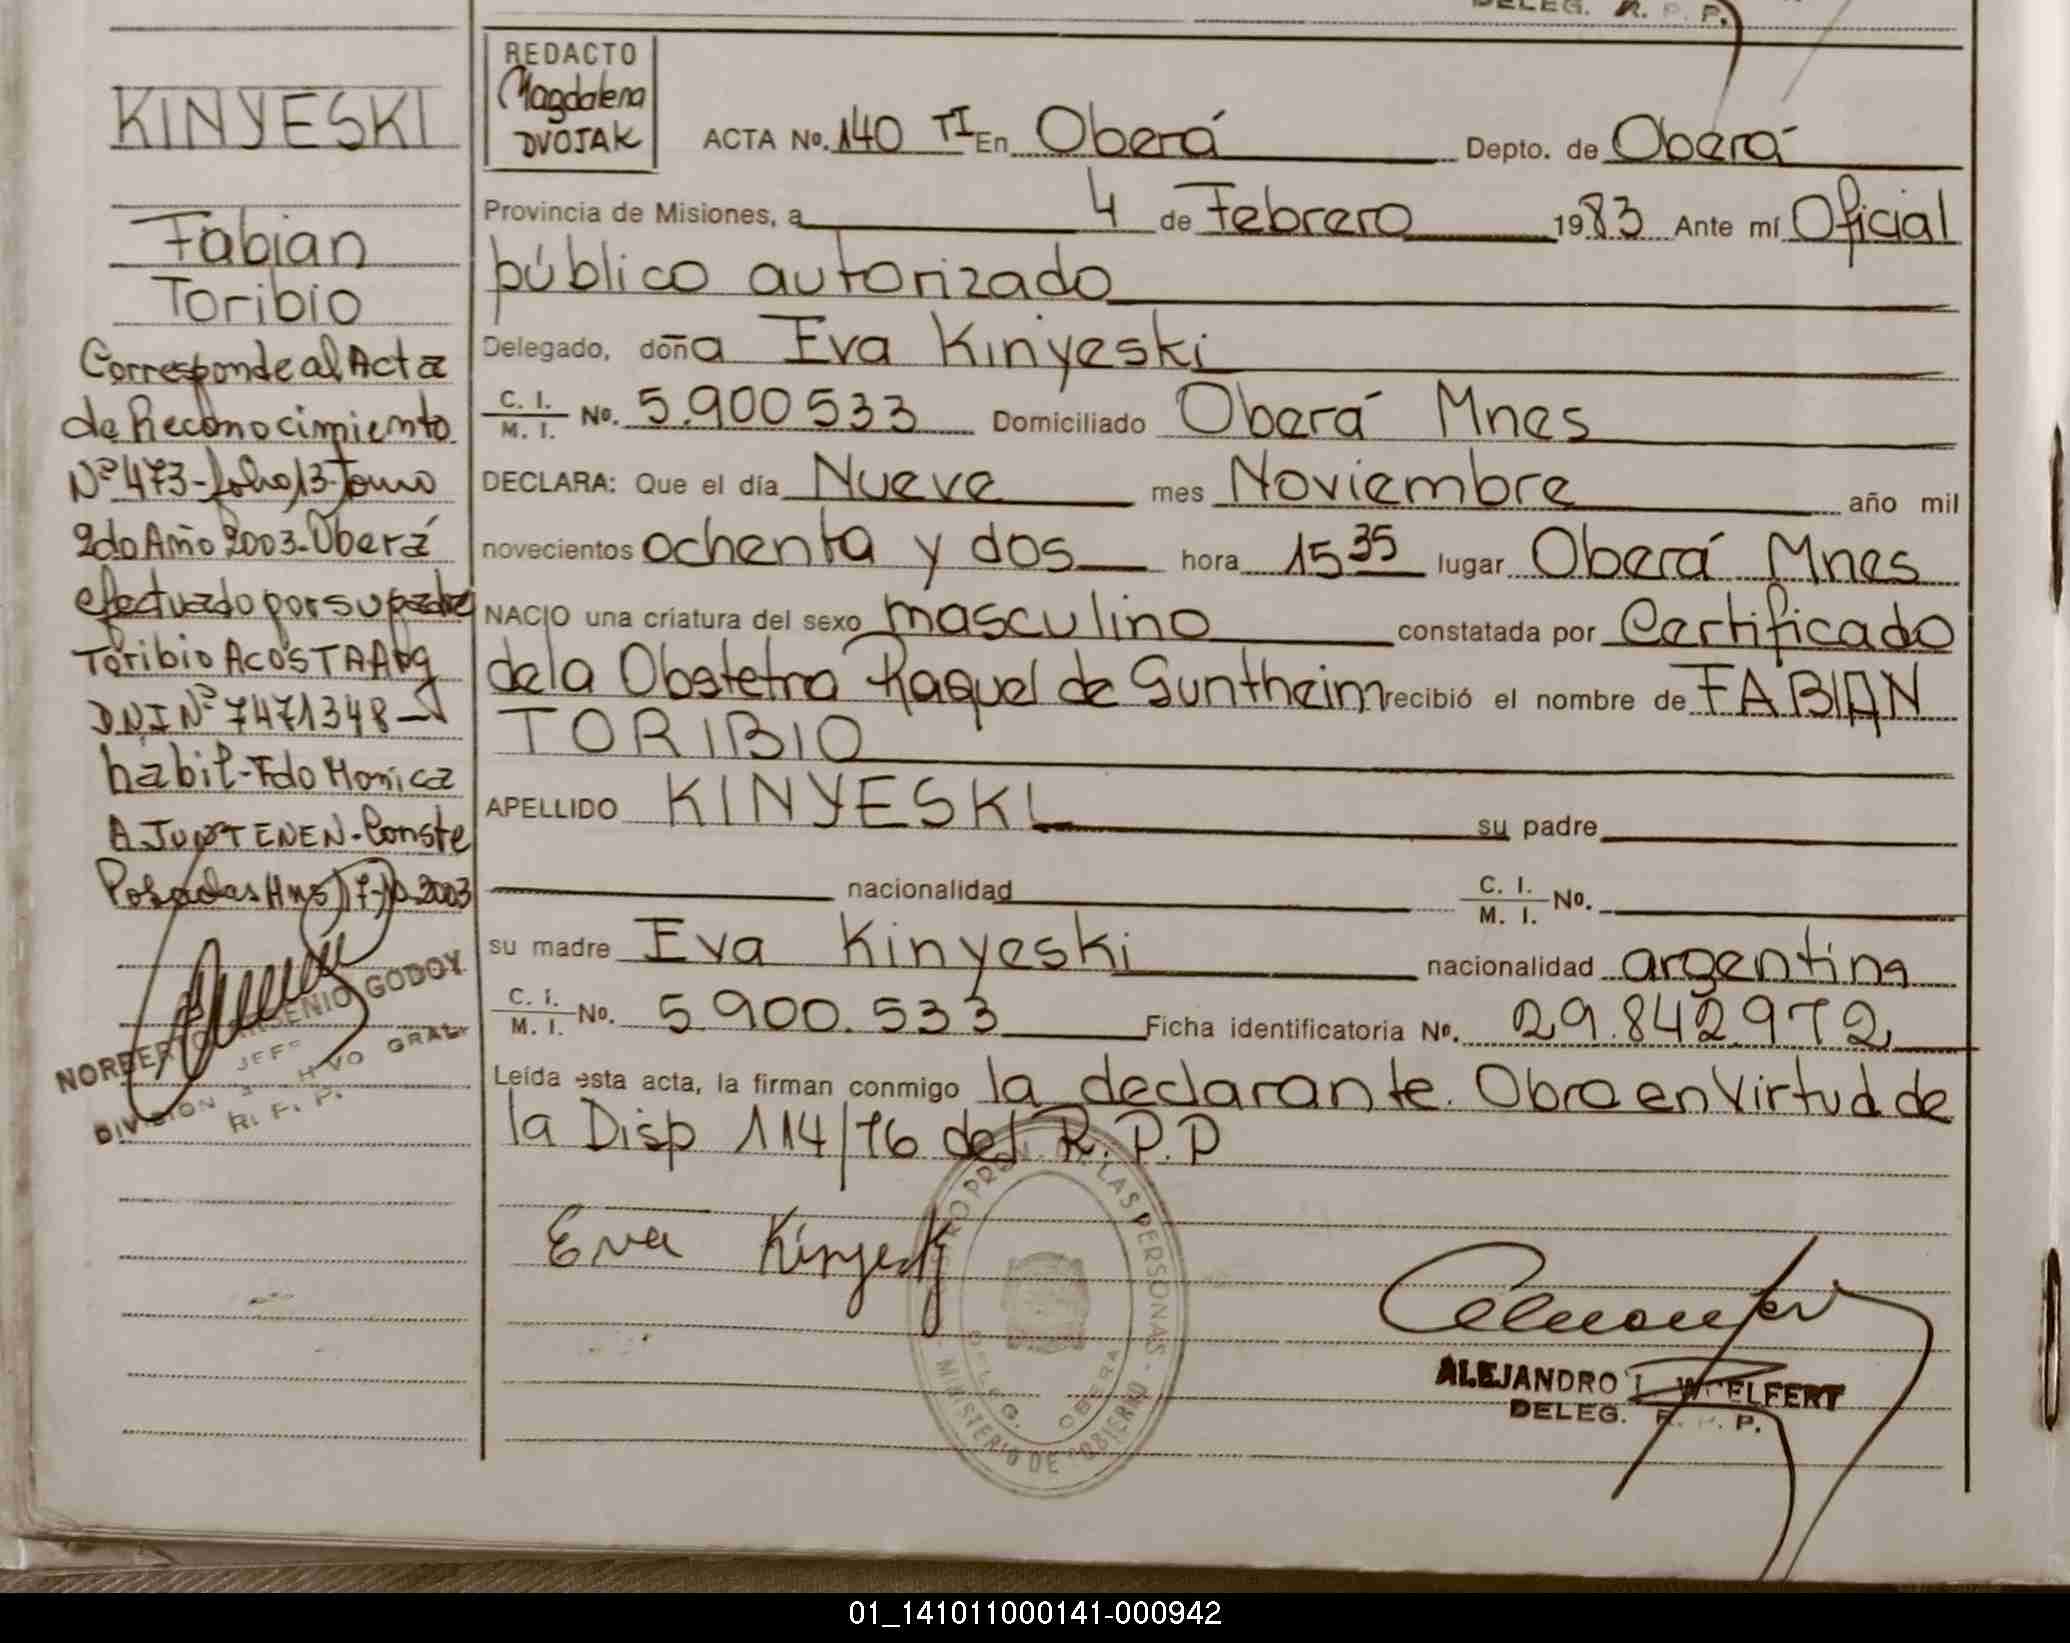 DELEG. R. P. P.
KINYESKI
Fabian
Toribio
Corresponde al Acta
de Reconocimiento
Nº 473-folio 13-Tomo
2do Año 2003-Oberá
efectuado por su padre
Toribio ACOSTA Arg
DNI Nº 7471348-
habil-Fdo Monica
A JUNTENEN-Conste
Posadas Mns 17-10-2003
NORBERTO ARSENIO GODOY
JEFE
DIVISION HVO GRAL
R. P. P.
REDACTO
Magdalena
DVOJAK
ACTA No. 140 TI En Oberá Depto. de Oberá
Provincia de Misiones, a 4 de Febrero 1983 Ante mí Oficial
público autorizado
Delegado, doña Eva Kinyeski
C. I. / M. I. No. 5.900533 Domiciliado Oberá Mnes
DECLARA: Que el día Nueve mes Noviembre año mil
novecientos ochenta y dos hora 15 35 lugar Oberá Mnes
NACIO una criatura del sexo masculino constatada por Certificado
de la Obstetra Raquel de Guntheim recibió el nombre de FABIAN
TORIBIO
APELLIDO KINYESKI su padre
nacionalidad C. I. / M. I. No.
su madre Eva Kinyeski nacionalidad argentina
C. I. / M. I. No. 5.900.533 Ficha identificatoria No. 29.842972
Leída esta acta, la firman conmigo la declarante. Obra en Virtud de
la Disp 114/76 del R.P.P
Eva Kinyeski
LAS PERSONAS - MINISTERIO DE GOBIERNO
DELEG. OBERA
ALEJANDRO L. WOELFERT
DELEG. R. P. P.
01_141011000141-000942